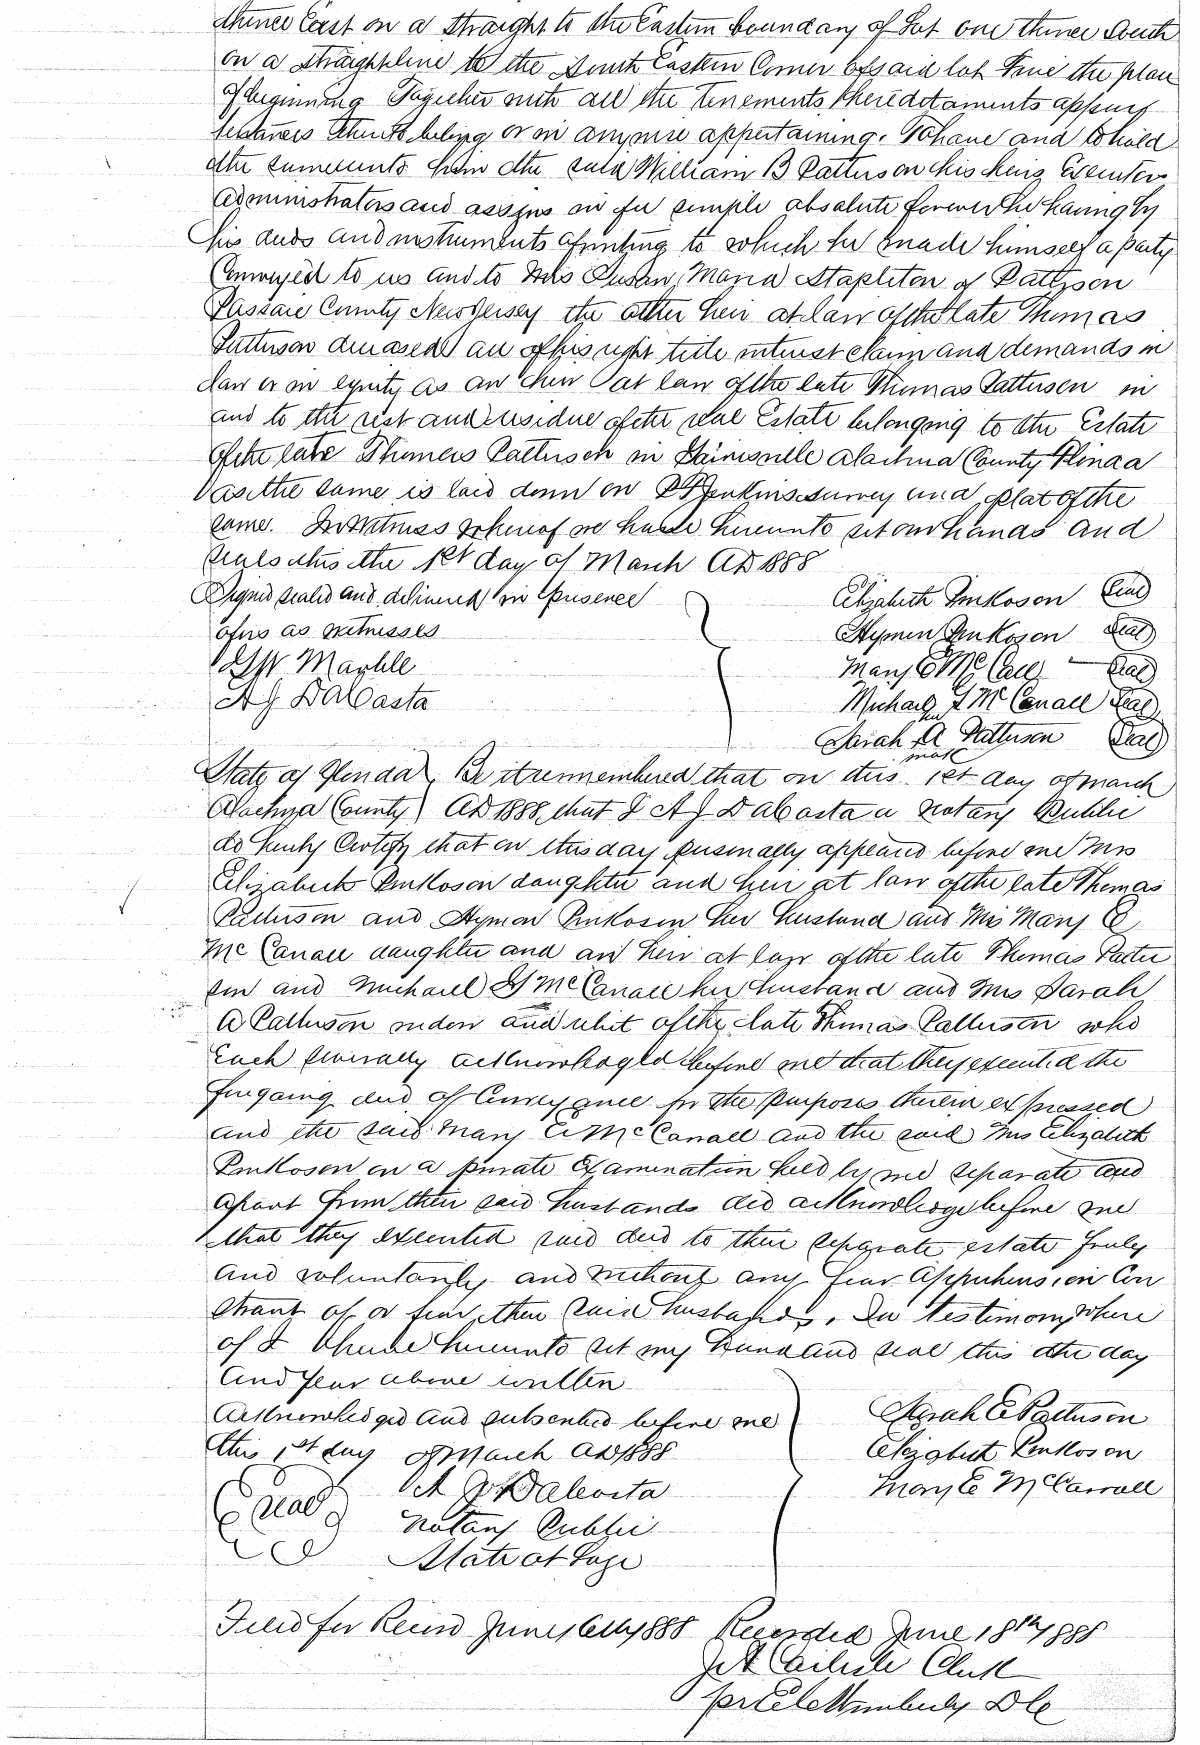 thence East on a straight to the Eastern boundary of Lot one thence South
on a straight line to the South Eastern Corner of said lot the place
of beginning Together with all the tenements heredetaments appurt
tenances thereto belong or in any wise appertaining. To have and to hold
the same unto him the said William B Patterson his heirs Executors
administrators and assigns in fee simple absolute forever he having by
his deeds and instruments of writing to which he made himself a party
Conveyed to us and to Mrs Susan Maria Stapleton of Patterson
Passaic County New Jersey the other heir at law of the late Thomas
Patterson deceased all of his right title interest claim and demands in
law or in equity as an heir at law of the late Thomas Patterson in
and to the rest and residue of the real Estate belonging to the Estate
of the late Thomas Patterson in Gainesville Alachua County Florida
as the same is laid down on Jenkins survey and plat of the
same. In Witness whereof we have hereunto set our hands and
seals this the 1st day of March AD 1888
Signed sealed and delivered in presence
of us as witnesses
Marble
A J DaCosta
Elizabeth Pinkoson Seal
Hymen Pinkoson Seal
Mary E McCall Seal
Michael G McCanall Seal
her
Sarah A Patterson Seal
mark
State of Florida Be it remembered that on this 1st day of March
Alachua County AD 1888 that I A J DaCosta a Notary Public
do hereby Certify that on this day personally appeared before me Mrs
Elizabeth Pinkoson daughter and heir at law of the late Thomas
Patterson and Hyman Pinkoson her husband and Mrs Mary E
McCanall daughter and an heir at law of the late Thomas Patter
son and Michael G McCanall her husband and Mrs Sarah
A Patterson widow and relict of the late Thomas Patterson who
Each severally acknowleged before me that they executed the
foregoing deed of Conveyance for the purposes therein expressed
and the said Mary E McCanall and the said Mrs Elizabeth
Pinkoson on a private Examination held by me separate and
apart from their said husbands did acknowledge before me
that they executed said deed to their separate estate freely
and voluntarily and without any fear Apprehension Con
straint of or from their said husbands. In testimony where
of I have hereunto set my Hand and seal this the day
And Year above written
Acknowledged and subscribed before me
this 1st day of March AD 1888
Sarah E Patterson
Elizabeth Pinkoson
Mary E McCarrall
Seal A J DaCosta
Notary Public
State at Large
Filed for Record June 16th 1888 Recorded June 18th 1888
J A Carlisle Clerk
per Wimberly DC